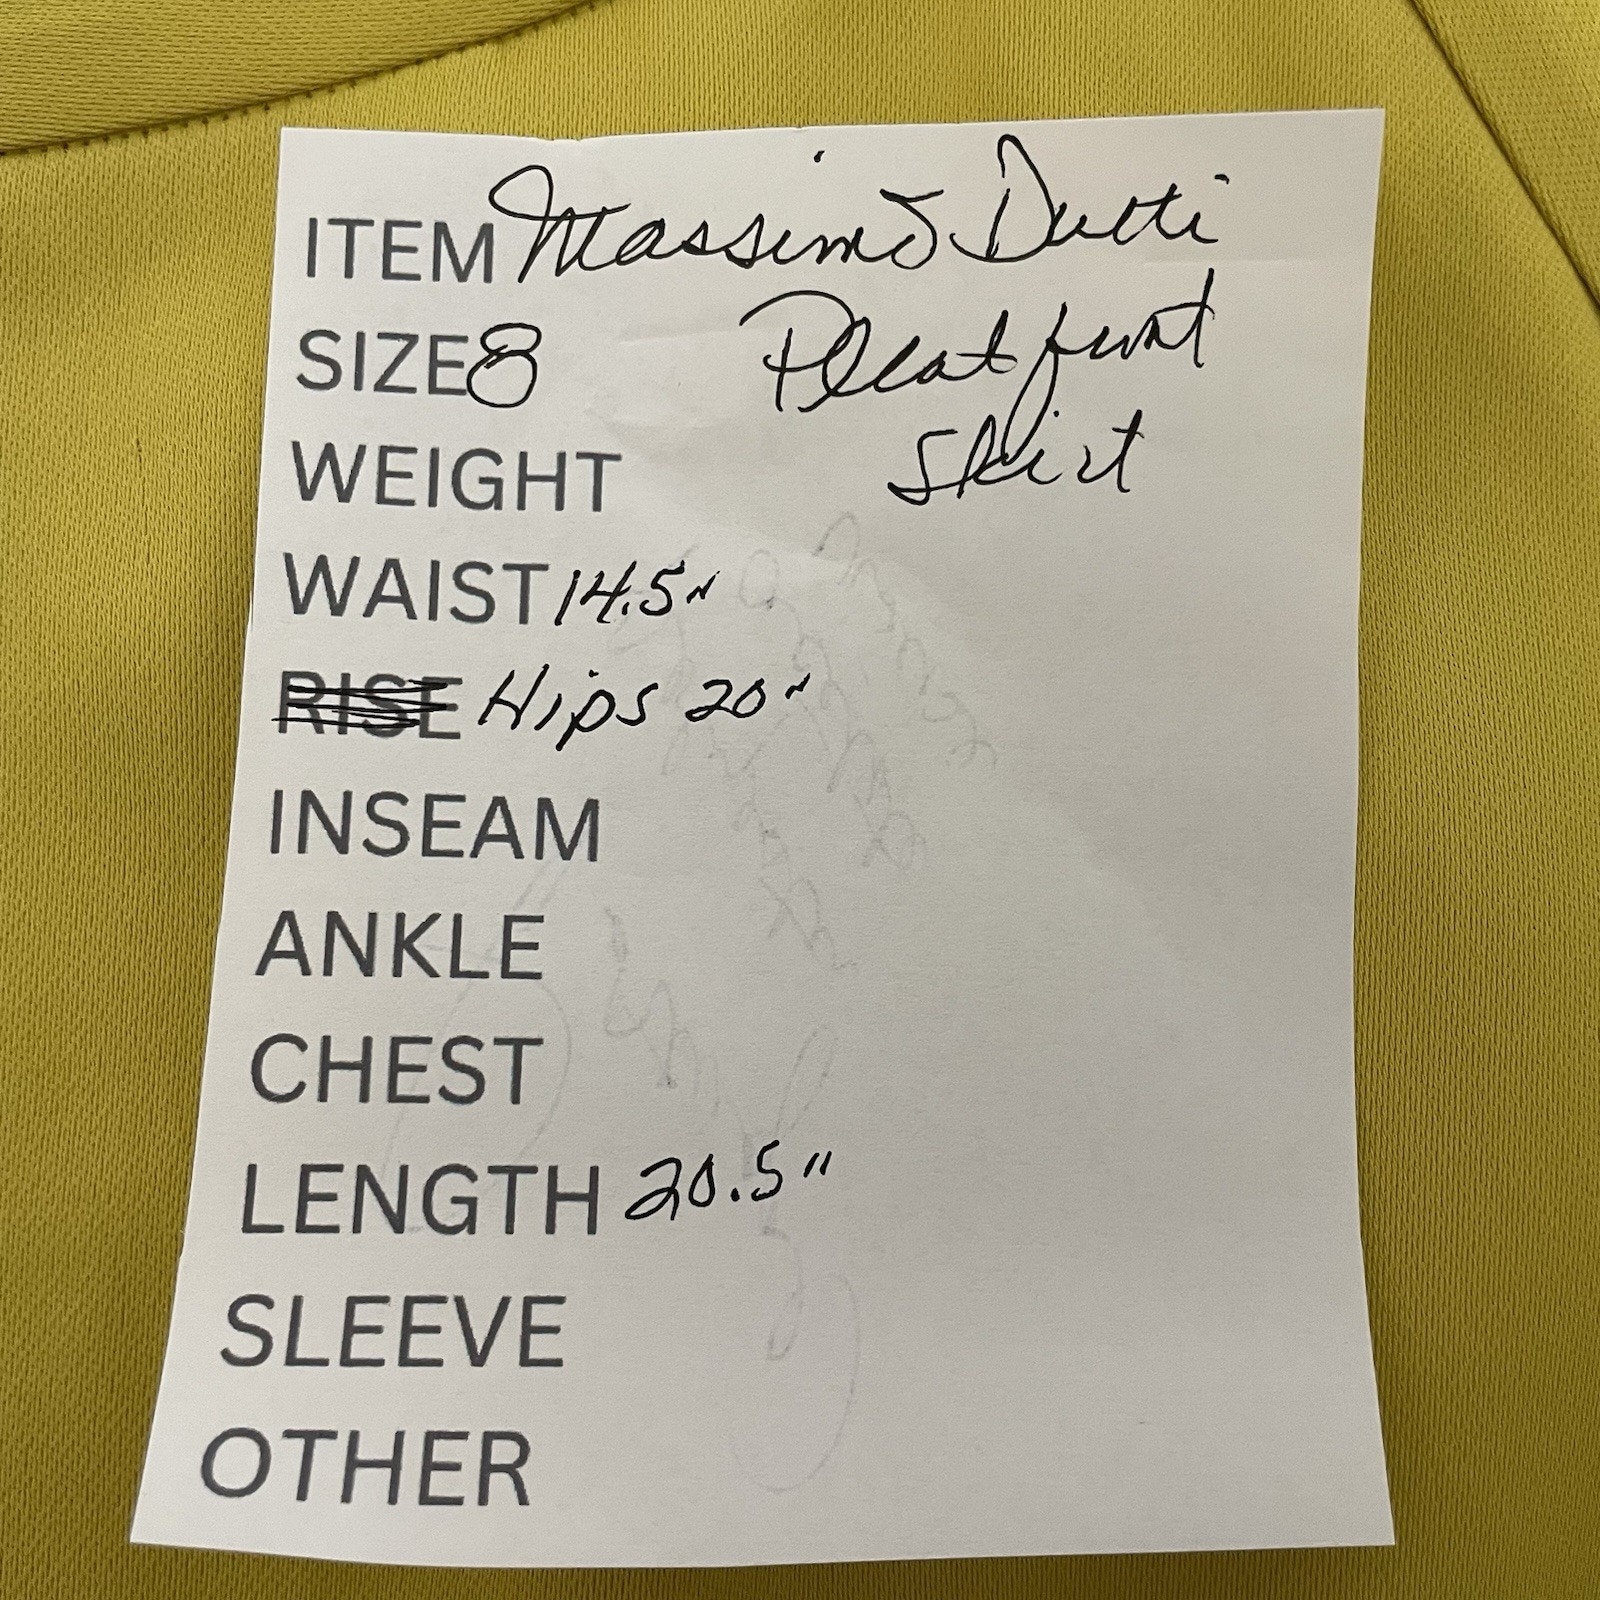 ITEM Massimo Dutti
Pleat front
SIZE 8
skirt
WEIGHT
WAIST 14.5"
RISE Hips 20"
INSEAM
ANKLE
CHEST
LENGTH 20.5"
SLEEVE
OTHER